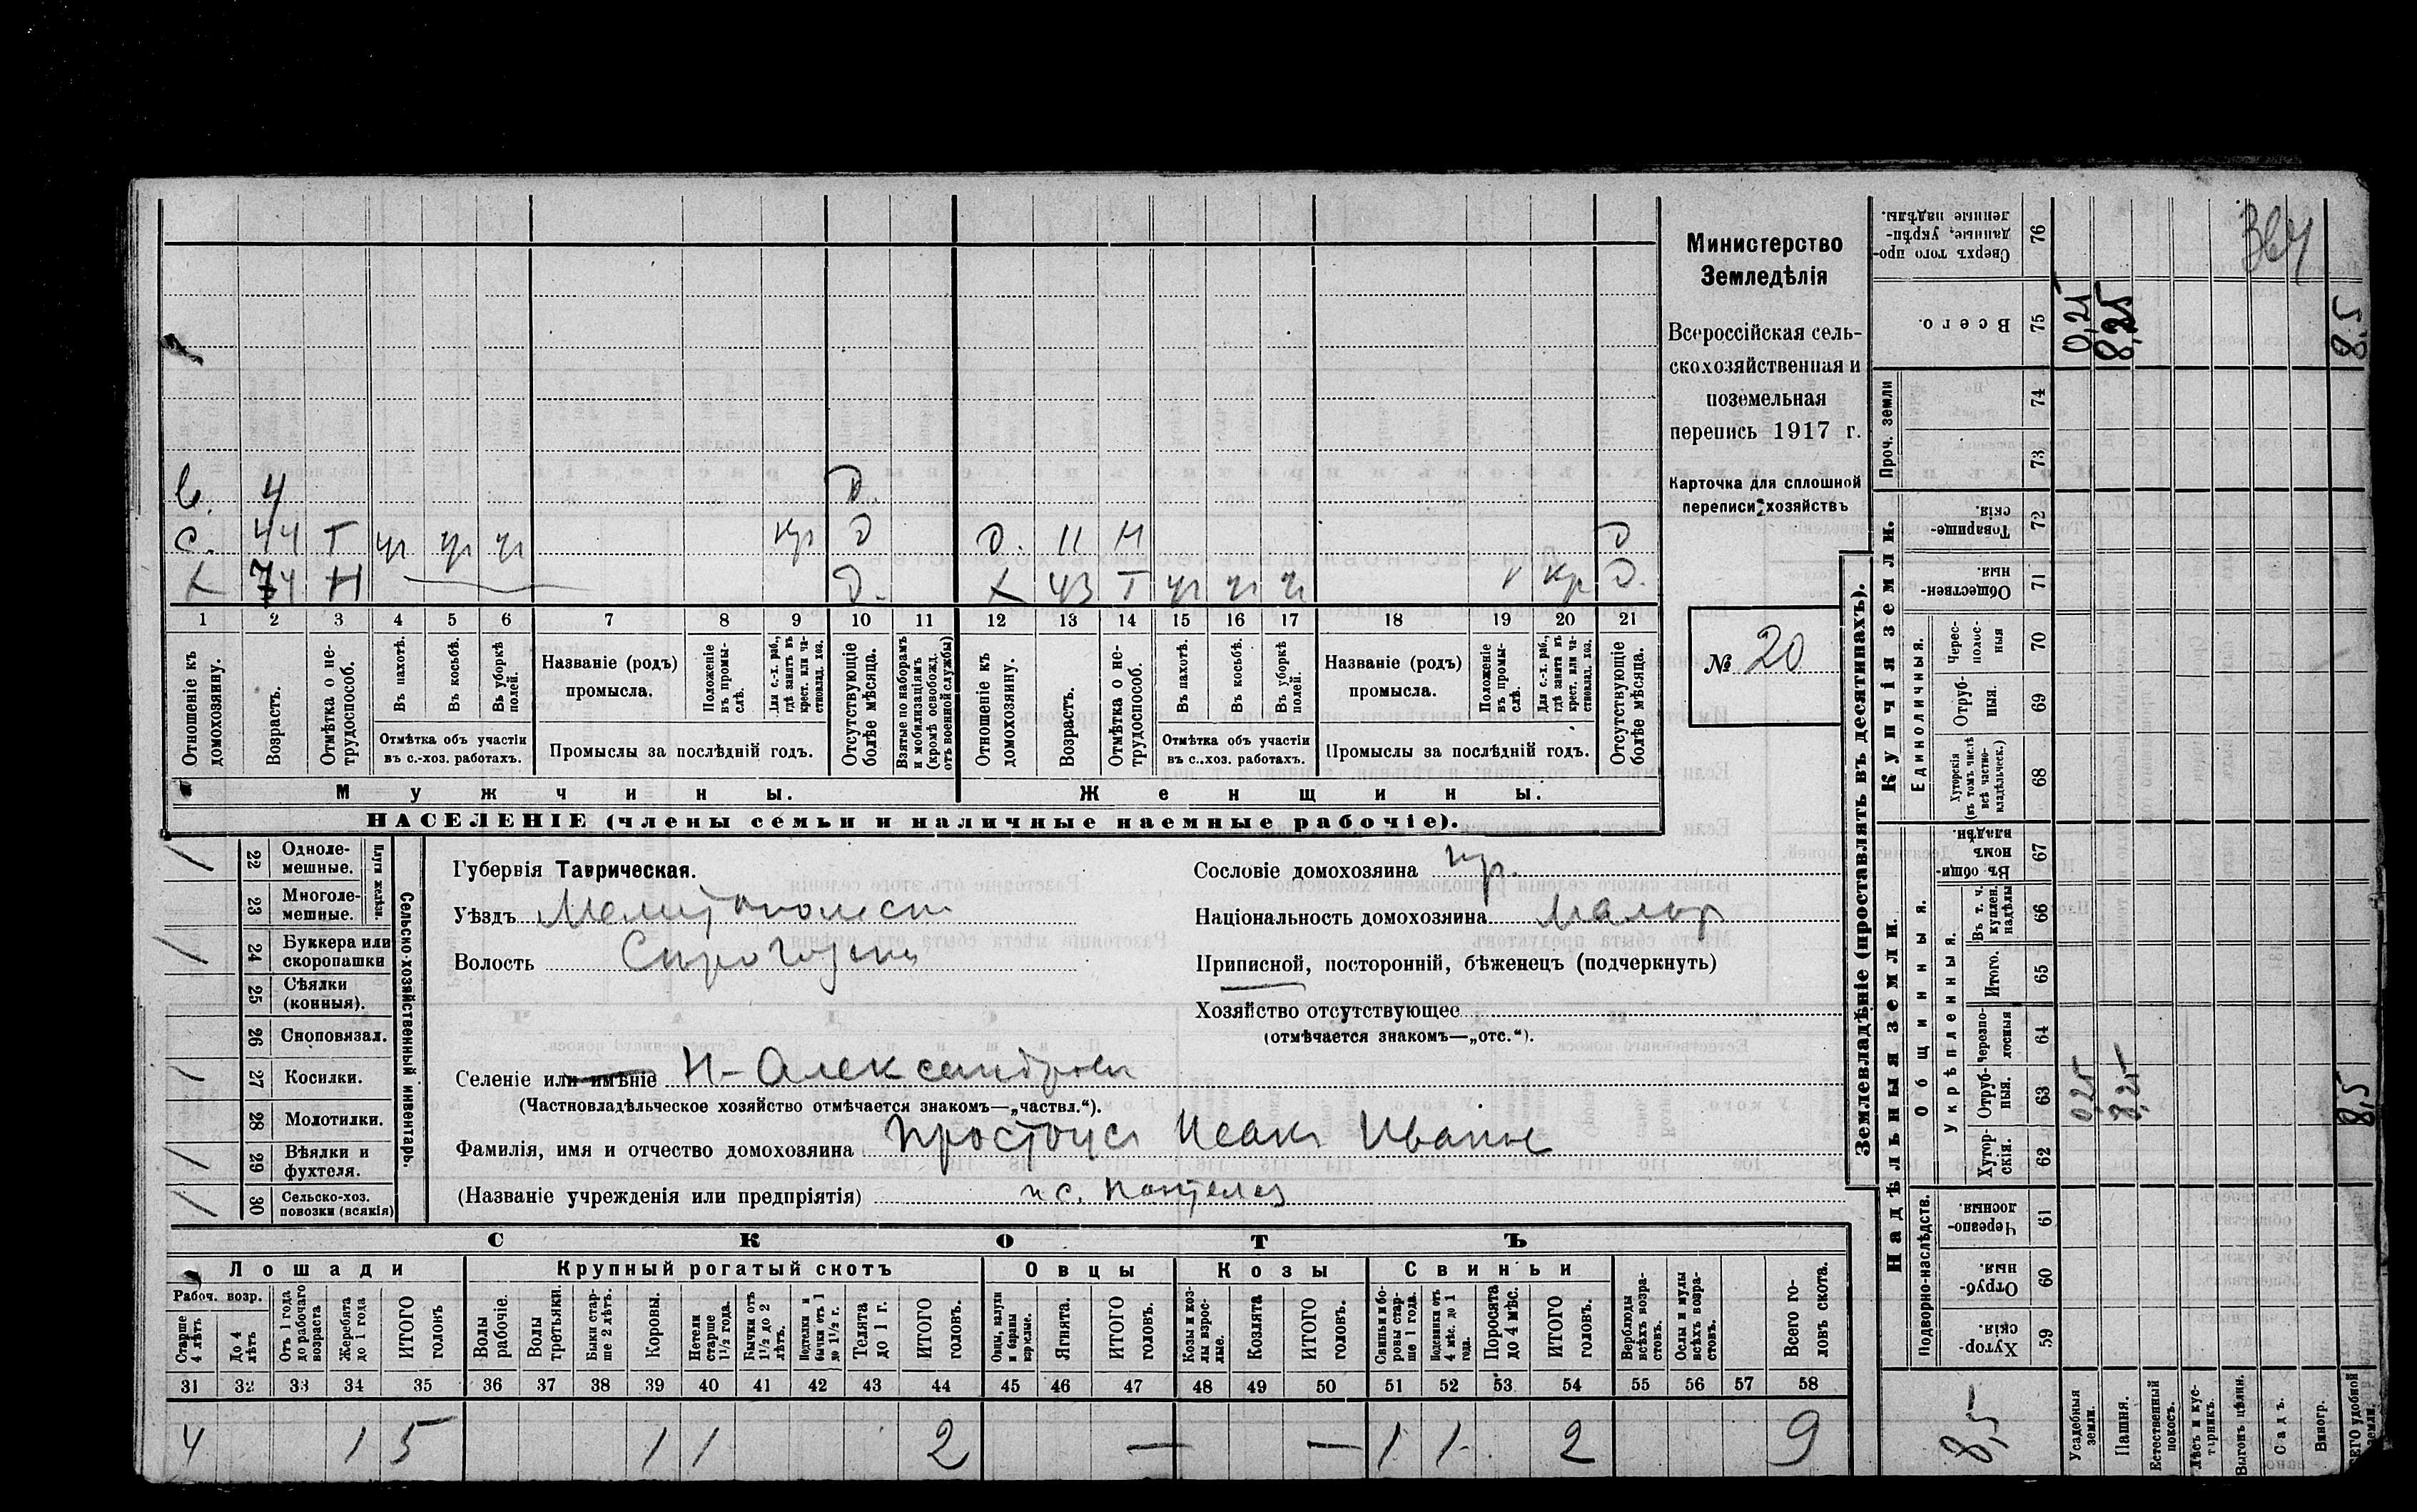 Министерство
Земледѣлія
Всероссійская сель-
скохозяйственная и
поземельная
перепись 1917 г.
Карточка для сплошной
переписи хозяйствъ
№ 20
364
в. 4 д.
с. 44 т уч уч уч кр д д. 11 н д
х 74 н д. х 43 т уч уч уч 1 кр д.
1 2 3 4 5 6 7 8 9 10 11 12 13 14 15 16 17 18 19 20 21
Отношеніе къ домохозяину.
Возрастъ.
Отмѣтка о не-трудоспособ.
Въ пахотѣ.
Въ косьбѣ.
Въ уборкѣ полей.
Отмѣтка объ участіи въ с.-хоз. работахъ.
Названіе (родъ) промысла.
Положеніе въ промы-слѣ.
Для с.-х. раб., гдѣ занятъ въ крест. или ча-стновлад. хоз.
Промыслы за послѣдній годъ.
Отсутствующіе болѣе мѣсяца.
Взятые по наборамъ и мобилизаціямъ (кромѣ освобожд. отъ военной службы)
Отношеніе къ домохозяину.
Возрастъ.
Отмѣтка о не-трудоспособ.
Въ пахотѣ.
Въ косьбѣ.
Въ уборкѣ полей.
Отмѣтка объ участіи въ с..хоз. работахъ.
Названіе (родъ) промысла.
Положеніе въ промы-слѣ.
Для с.-х. раб., гдѣ занята въ крест. или ча-стновлад. хоз.
Промыслы за послѣдній годъ.
Отсутствующіе болѣе мѣсяца.
Мужчины. Женщины.
НАСЕЛЕНІЕ (члены семьи и наличные наемные рабочіе).
Сельско-хозяйственный инвентарь.
Плуги желѣз.
/ 22 Одноле-мешные.
23 Многоле-мешные.
/ 24 Буккера или скоропашки
25 Сѣялки (конныя).
26 Сноповязал.
/ 27 Косилки.
28 Молотилки.
/ 29 Вѣялки и фухтеля.
/ 30 Сельско-хоз. повозки (всякія)
Губернія Таврическая.
Уѣздъ Мелитопольск
Волость Сирогозск
Селеніе или имѣніе Н-Александровк
(Частновладѣльческое хозяйство отмѣчается знакомъ—„частвл.“).
Фамилія, имя и отчество домохозяина Простоусъ Исакъ Иванов
(Названіе учрежденія или предпріятія)
Сословіе домохозяина кр.
Національность домохозяина малор
Приписной, посторонній, бѣженецъ (подчеркнуть)
Хозяйство отсутствующее
(отмѣчается знакомъ—„отс.“).
СКОТЪ
Лошади Крупный рогатый скотъ Овцы Козы Свиньи
Рабоч. возр.
Старше 4 лѣтъ
До 4 лѣтъ
Отъ 1 года до рабочаго возраста
Жеребята до 1 года
ИТОГО головъ
Волы рабочіе.
Волы третьяки.
Быки стар-ше 2 лѣтъ.
Коровы.
Нетели старше 1½ года.
Бычки отъ 1½ до 2 лѣтъ.
Подтелки и бычки отъ 1 до 1½ г.
Телята до 1 г.
ИТОГО головъ.
Овцы, валухи и бараны взрослые.
Ягнята.
ИТОГО головъ.
Козы и коз-лы взрос-лые.
Козлята
ИТОГО головъ.
Свиньи и бо-ровы стар-ше 1 года.
Подсвинки отъ 4 мѣс. до 1 года.
Поросята до 4 мѣс.
ИТОГО головъ.
Верблюды всѣхъ возра-стовъ.
Ослы и мулы всѣхъ возра-стовъ.
Всего го-ловъ скота.
31 32 33 34 35 36 37 38 39 40 41 42 43 44 45 46 47 48 49 50 51 52 53 54 55 56 57 58
4 1 5 1 1 2 — — 1 1 2 9
Землевладѣніе (проставлять въ десятинахъ).
Надѣльныя земли.
Подворно-наслѣдств.
Хутор-скія. 59
Отруб-ныя. 60
Черезпо-лосныя. 61
Общинныя.
Укрѣпленныя.
Хутор-скія. 62
Отруб-ныя. 63 0,25 8,25 8,5
Черезпо-лосныя 64
Итого. 65
Въ т. ч. куплен. надѣлы 66
Въ общин-номъ владѣн. 67
Купчія земли.
Единоличныя.
Хуторскія (въ томъ числѣ всѣ частно-владѣльческ.) 68
Отруб-ныя. 69
Черес-полос-ныя 70
Обществен-ныя. 71
Товарище-скія. 72
Проч. земли 73 74
Всего. 75 0,25 8,25 8,5
Сверхъ того про-данные, укрѣп-ленные надѣлы. 76
8,5
Усадебныя земли.
Пашня.
Естественный покосъ.
Лѣсъ и кус-тарникъ.
Выгонъ цѣлин.
Садъ.
Виногр.
ВСЕГО удобной земли.